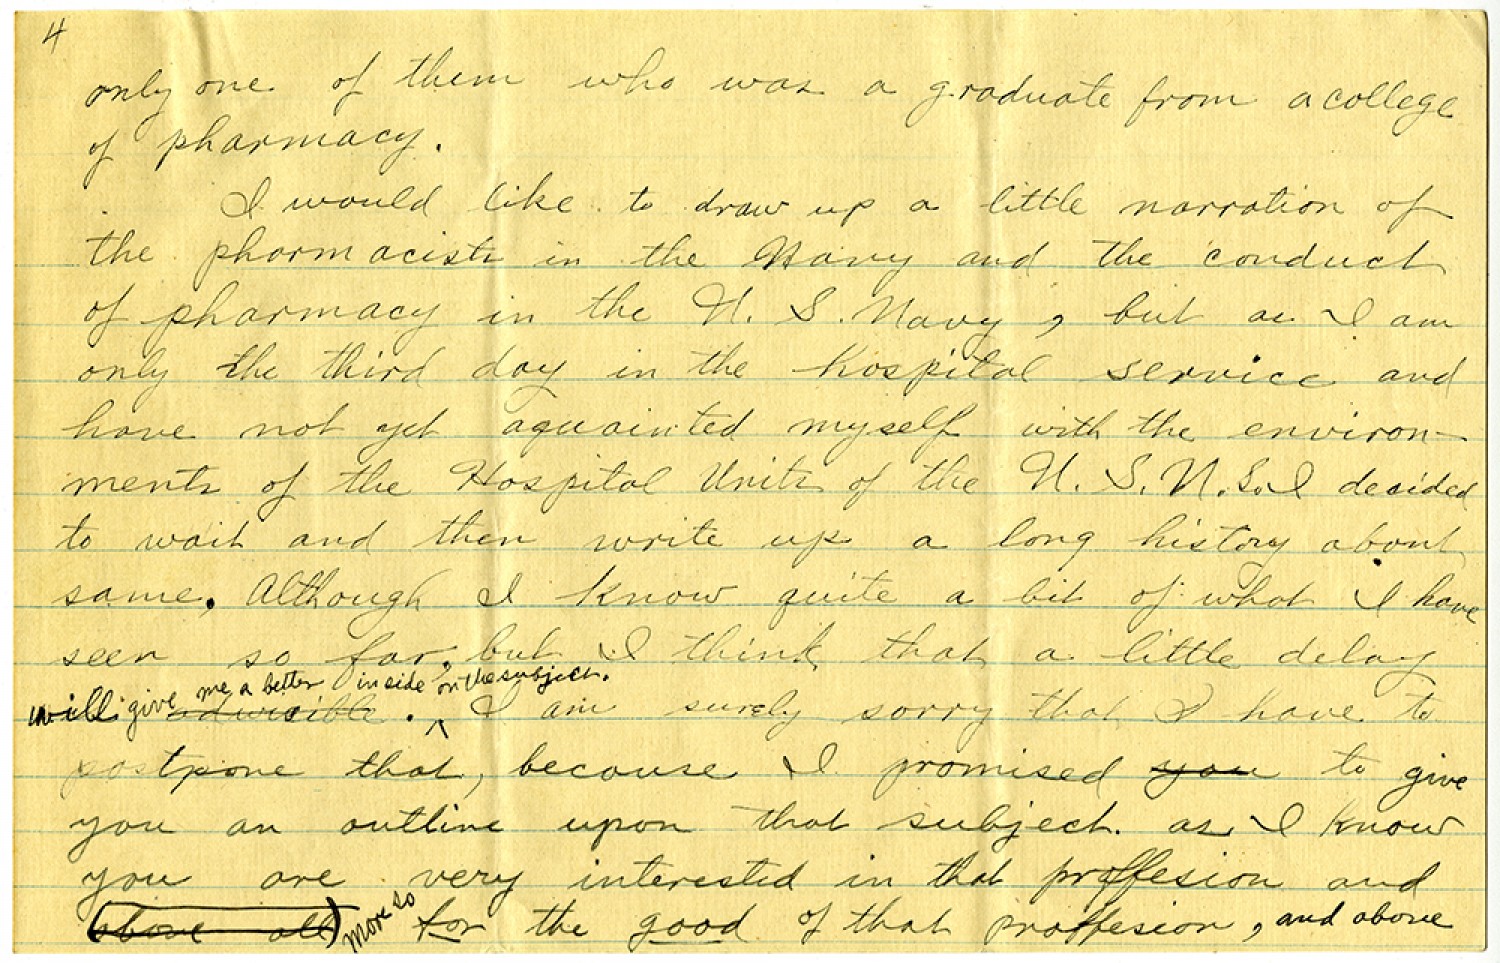 4
only one of them who was a graduate from a college
of pharmacy.
I would like to draw up a little narration of
the pharmacists in the Navy and the conduct
of pharmacy in the U. S. Navy, but as I am
only the third day in the Hospital service and
have not yet aquainted myself with the environ-
ments of the Hospital Units of the U. S. N. So I decided
to wait and then write up a long history about
same. Although I know quite a bit of what I have
seen so far, but I think that a little delay
will give me a better inside on the subject.
I am surely sorry that I have to
postpone that, because I promised you to give
you an outline upon that subject. as I know
you are very interested in that proffesion and
above all more so for the good of that proffesion, and above